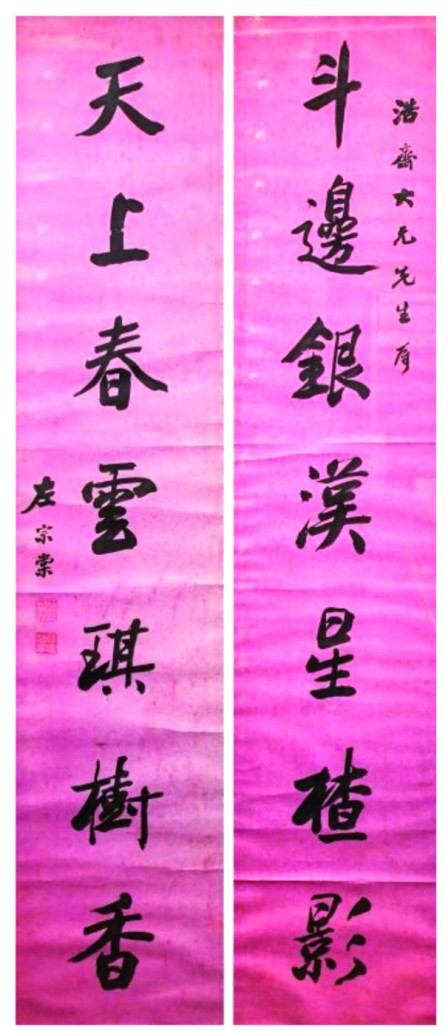 浩齋大兄先生
斗邊銀漢星楂影
天上春雲琪樹香
左宗棠